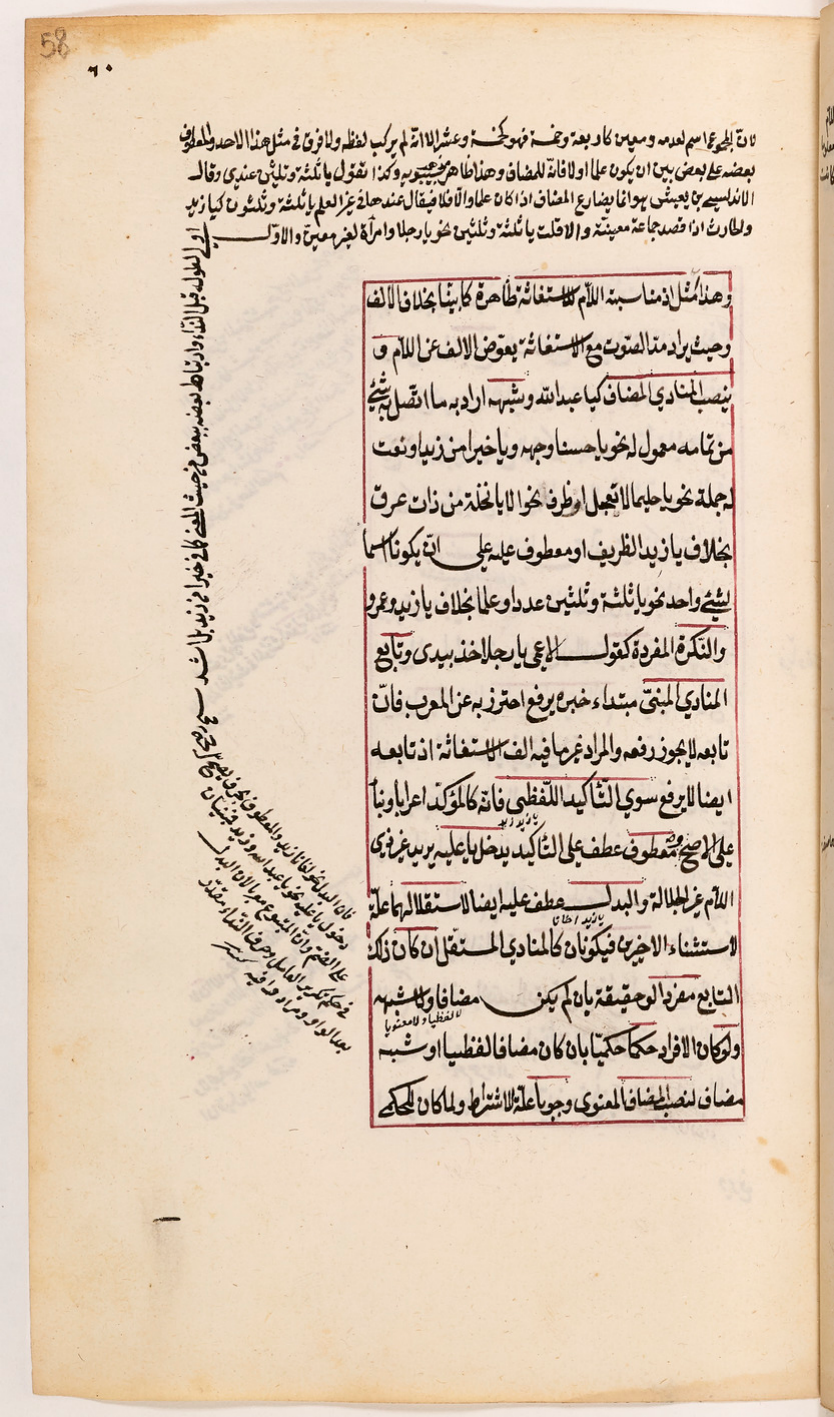 58
٦٠
فان المجموع اسم لعدد معين كاربعة وخمسة فهو كخمسة وعشر الا انه لم يركب لفظه ولا فرق في مثل هذا الاحد والمعطوف
بعضه على بعض بين ان يكون علما او لا فانه للمضاف وهذا ظاهر مذهب سيبويه وكذا تقول يا ثلثة وثلثين عندي وقال
الاندلسي بن يعيش هو انما يضارع المضاف اذا كان علما والا فلا فيقال عندهما في غير العلم يا ثلثة وثلثون كيا زيد
والحارث اذا قصد جماعة معينة والا قلت يا ثلثة وثلثين نحو يا رجلا وامرأة لغير معين والاول
اولى لطوله قبل النداء وارتباط بعضه ببعض من حيث المعنى كما في خيرا من زيد
وهذا امثل اذ مناسبة اللام للاستغاثة ظاهرة كما بيّنا بخلاف الالف
وحيث يراد مد الصوت مع الاستغاثة يعوض الالف عن اللام و
ينصب المنادي المضاف كيا عبد الله وشبهه اراد به ما اتصل به شئ
من تمامه معمول له نحو يا حسنا وجهه ويا خيرا من زيد او نعت
له جملة نحو يا حليما لا تعجل او ظرف نحو الا يا نخلة من ذات عرق
بخلاف يا زيد الظريف او معطوف عليه على ان يكونا اسما
لشئ واحد نحو يا ثلثة وثلثين عددا وعلما بخلاف يا زيد وعمرو
والنكرة المفردة كقول الاعمى يا رجلا خذ بيدى وتابع
المنادي المبنىّ مبتداء خبره يرفع احترز به عن المعرب فانّ
تابعه لا يجوز رفعه والمراد غير ما فيه الف الاستغاثة اذ تابعه
ايضا لا يرفع سوي التّاكيد اللّفظى فانّه كالمؤكّد اعرابا وبناء
يا زيد زيد
على الاصح ومعطوف عطف على التّاكيد يدخل يا عليه يريد غير ذى
اللام غير الجلالة والبدل عطف عليه ايضا لاستقلالهما علّة
لاستثناء الاخيرين فيكونان كالمنادي المستقل ان كان ذلك
التابع مفردا لو حقيقة بان لم يكن مضافا ولا شبهه
لا لفظيا ولا معنويا
ولو كان الافراد حكما حكميّا بان كان مضافا لفظيا او شبه
مضاف لنصب المضاف المعنوى وجوبا علّة لاشتراط ولما كان للحكمى
فان البدل نحو يا غلامنا زيد والمعطوف
دخول يا عليه نحو يا عبد الله وزيد مبنيان
على الضم وان المتبوع معربا لان البدل
في حكم تكرير العامل وحرف النداء مقدر
بعد الواو ومراد وافيه